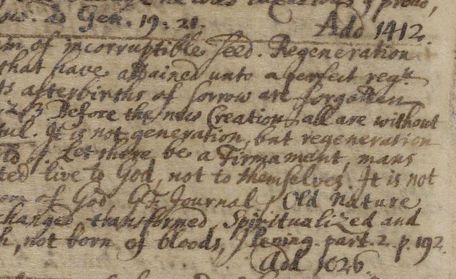 ow. as Gen. 19. 21. Add 1412.
of incorruptible seed. Regeneration
that have attained unto a perfect reg:n
its afterbirths of sorrow are forgotten
2. 3 Before the new Creation, all are without
It is not generation, but regeneration
Let there be a Firmament, mans
ted live to God, not to themselves. It is not
of God, G. F. Journal Old Nature
changed, transformed, Spiritualized and
not born of bloods, part. 2. p. 192.
Add 1626.